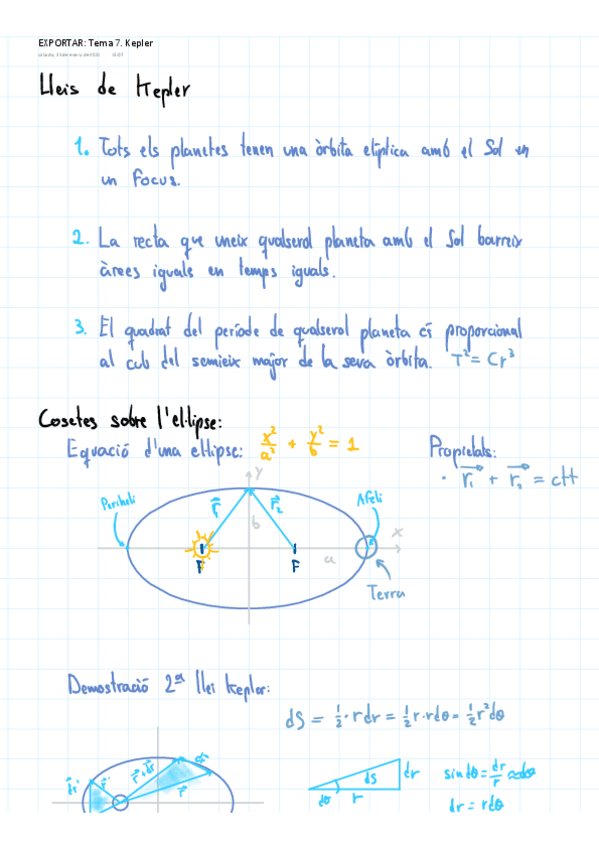 EXPORTAR: Tema 7. Kepler
Lleis de Kepler
1. Tots els planetes tenen una òrbita elíptica amb el Sol en
un focus.
2. La recta que uneix qualserol planeta amb el Sol barreix
àrees iguals en temps iguals.
3. El quadrat del període de qualserol planeta és proporcional
al cub del semieix major de la seva òrbita. T² = Cr³
Cosetes sobre l'el·lipse:
Equació d'una el·lipse: x²/a² + y²/b = 1
Propietats:
· r₁ + r₂ = ctt
y
Periheli
r₁
r₂
Afeli
b
x
F
F
a
Terra
Demostració 2ª llei Kepler:
dS = 1/2 · r dr = 1/2 r · r dθ = 1/2 r² dθ
r
r
dS
dr
dθ
r
sin dθ = dr/r
dr = r dθ